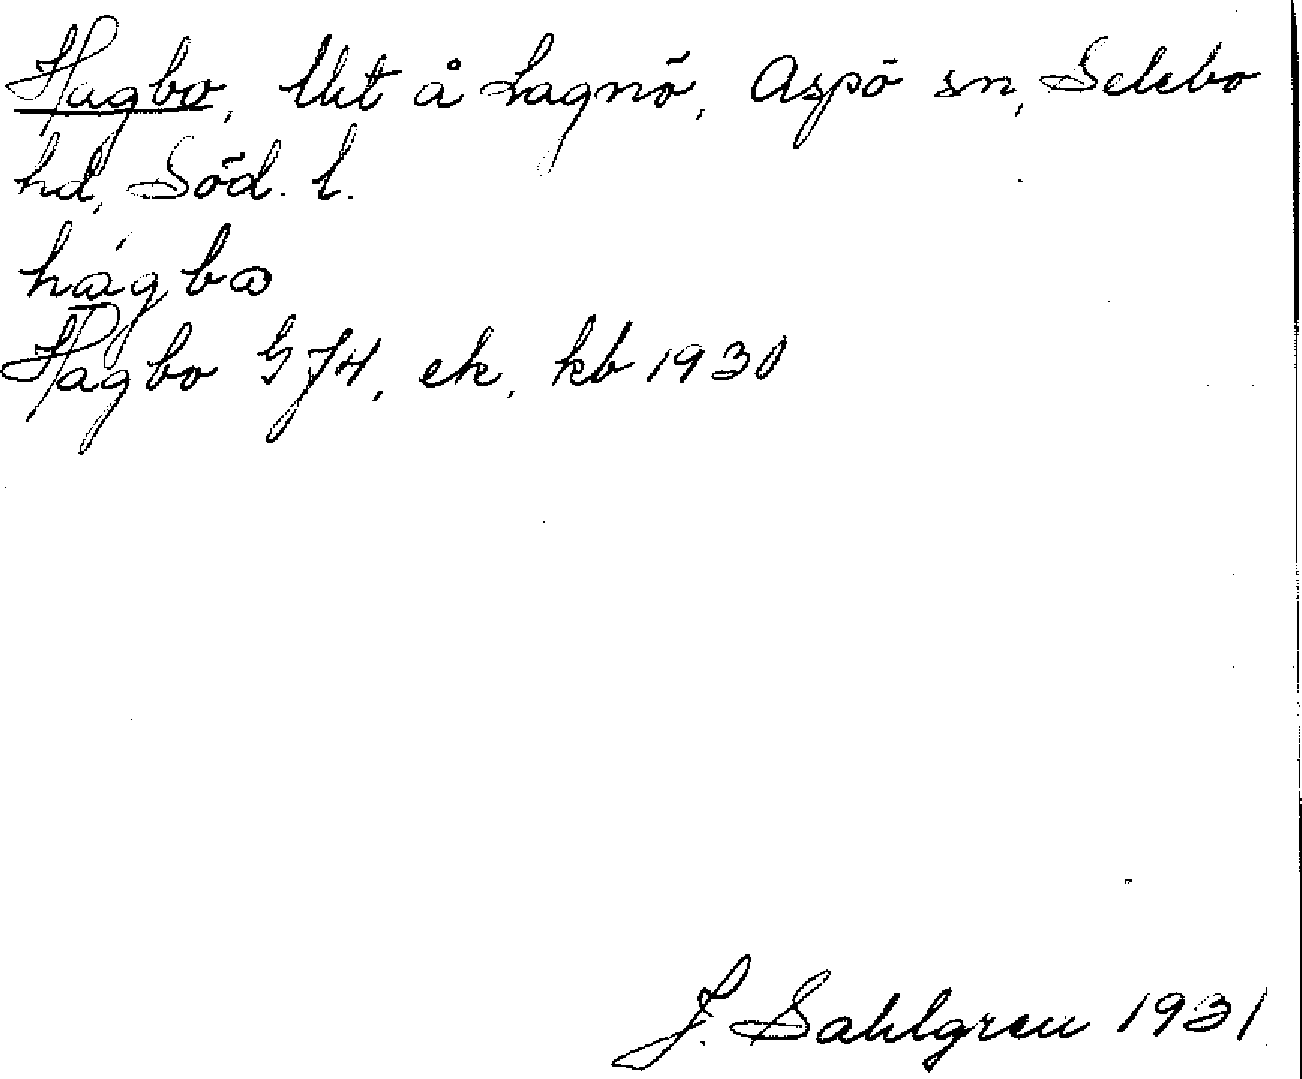 Hagbo, lht å Lagnö, Aspö sn, Selebo
hd, Söd. l.
hágbω
Hagbo GJ4, ek, kb 1930
J. Sahlgren 1931